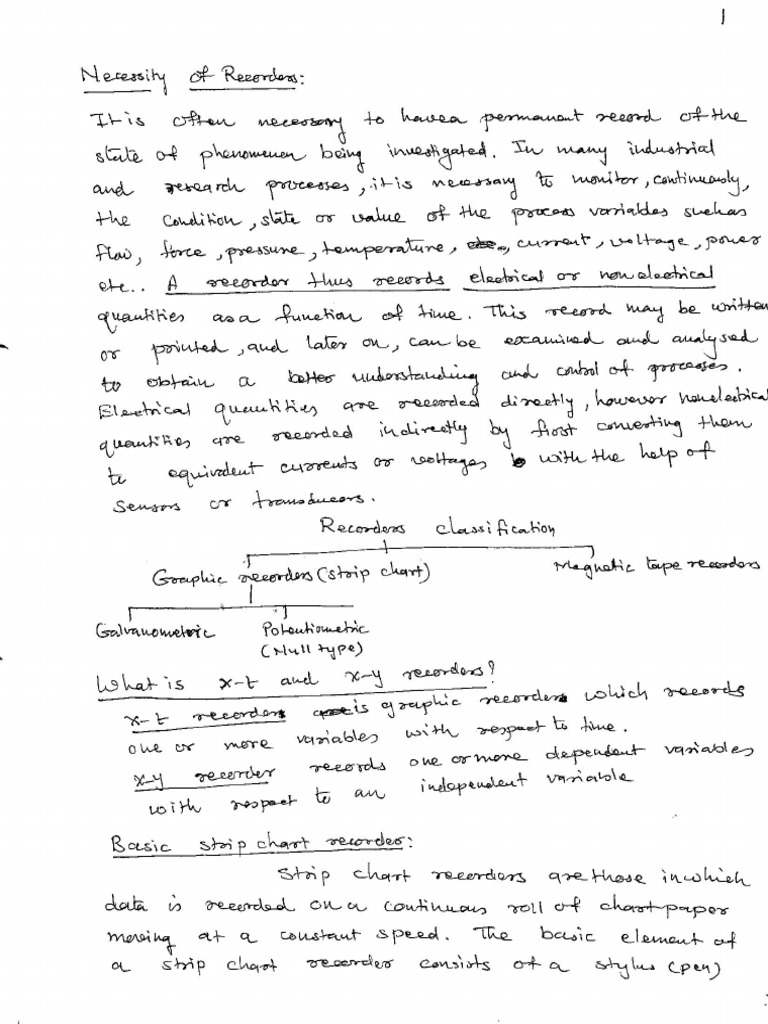 1
Necessity of Recorders:
It is often necessary to have a permanent record of the
state of phenomenen being investigated. In many industrial
and research processes, it is necessary to monitor, continuously,
the condition, state or value of the process variables such as
flow, force, pressure, temperature, current, voltage, power
etc.. A recorder thus records electrical or non electrical
quantities as a function of time. This record may be written
or printed, and later on, can be examined and analysed
to obtain a better understanding and control of processes.
Electrical quantities are recorded directly, however nonelectrical
quantities are recorded indirectly by first converting them
to equivalent currents or voltages with the help of
sensors or transducers.
Recorders classification
Graphic recorders (strip chart) Magnetic tape recorders
Galvanometric Potentiometric
(Null type)
What is x-t and x-y recorders?
x-t recorder is graphic recorder which records
one or more variables with respect to time.
x-y recorder records one or more dependent variables
with respect to an independent variable
Basic strip chart recorder:
Strip chart recorders are those in which
data is recorded on a continuous roll of chart paper
moving at a constant speed. The basic element of
a strip chart recorder consists of a stylus (pen)